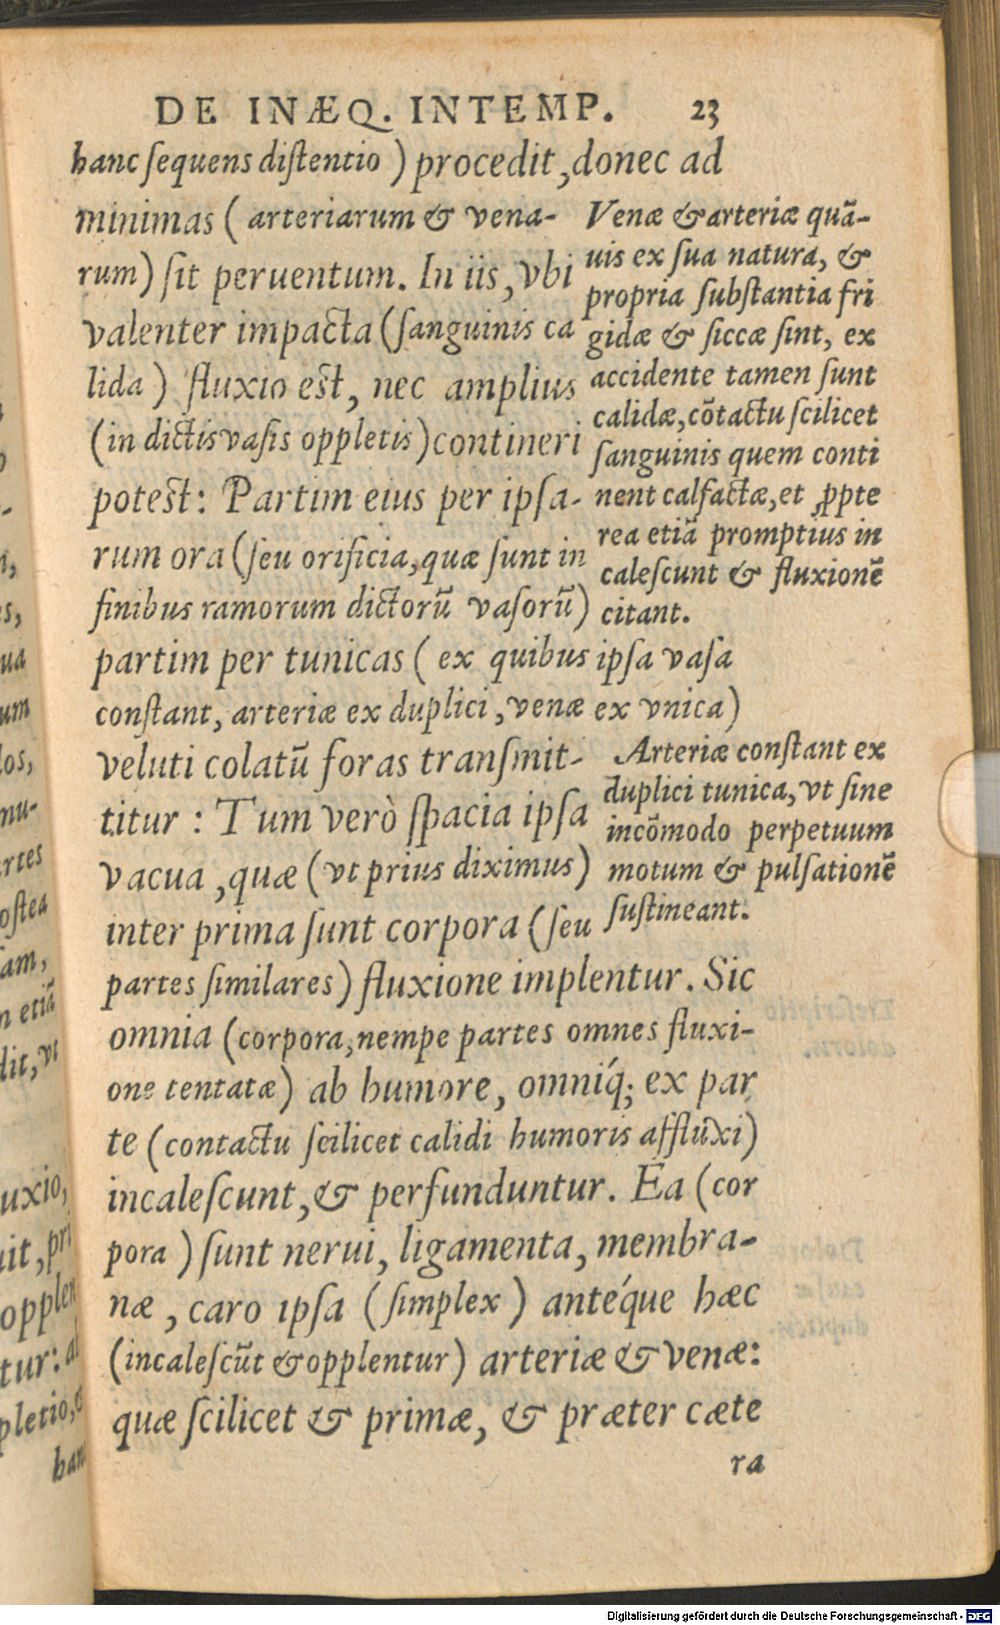 DE INÆQ. INTEMP. 23
hanc ſequens diſtentio ) procedit, donec ad
minimas ( arteriarum & vena-
rum) ſit peruentum. In iis, vbi
valenter impacta (ſanguinis ca
lida ) fluxio est, nec amplius
(in dictis vaſis oppletis) contineri
potest: Partim eius per ipſa-
rum ora (ſeu orificia, quæ ſunt in
finibus ramorum dictorũ vaſorũ)
partim per tunicas ( ex quibus ipſa vaſa
conſtant, arteriæ ex duplici, venæ ex vnica)
veluti colatũ foras tranſmit-
titur : Tum verò ſpacia ipſa
vacua, quæ (vt prius diximus)
inter prima ſunt corpora (ſeu
partes ſimilares) fluxione implentur. Sic
omnia (corpora, nempe partes omnes fluxi-
one tentatæ) ab humore, omniq́; ex par
te (contactu ſcilicet calidi humoris affluxi)
incaleſcunt, & perfunduntur. Ea (cor
pora ) ſunt nerui, ligamenta, membra-
næ, caro ipſa (ſimplex) antéque hæc
(incaleſcũt & opplentur) arteriæ & venæ:
quæ ſcilicet & primæ, & præter cæte
ra
Venæ & arteriæ quã-
uis ex ſua natura, &
propria ſubſtantia fri
gidæ & ſiccæ ſint, ex
accidente tamen ſunt
calidæ, cõtactu ſcilicet
ſanguinis quem conti
nent calfactæ, et ꝓpte
rea etiã promptius in
caleſcunt & fluxionẽ
citant.
Arteriæ conſtant ex
duplici tunica, vt ſine
incõmodo perpetuum
motum & pulſationẽ
ſuſtineant.
ua
um
los,
mu-
artes
oſtea
iam,
n etiã
dit, vt
uxio,
uit, pri
opplen
tur: al
pletio,
han
Digitalisierung gefördert durch die Deutsche Forschungsgemeinschaft - DFG